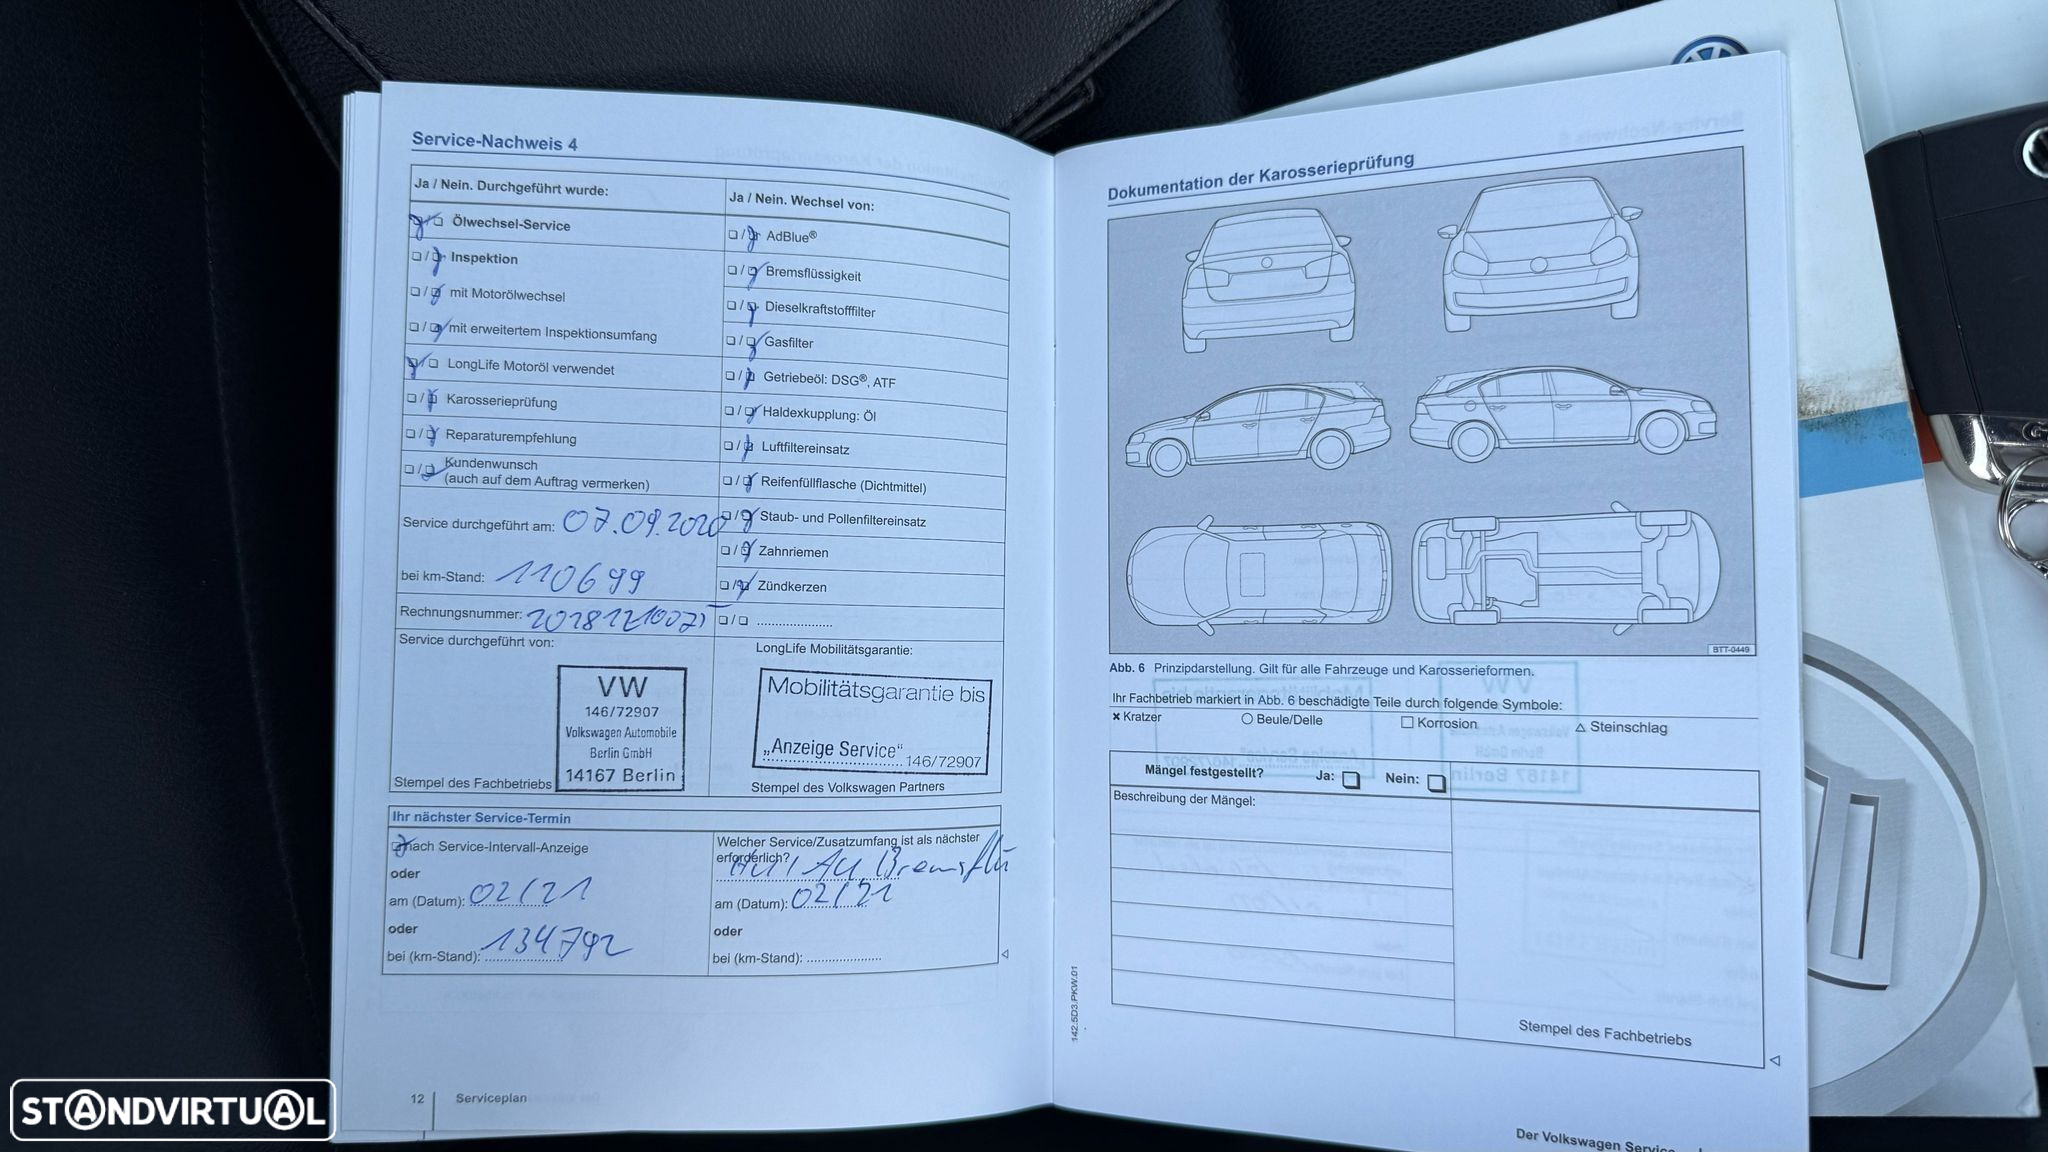 Service-Nachweis 4
Ja / Nein. Durchgeführt wurde:
Ölwechsel-Service
Inspektion
mit Motorölwechsel
mit erweitertem Inspektionsumfang
LongLife Motoröl verwendet
Karosserieprüfung
Reparaturempfehlung
Kundenwunsch
(auch auf dem Auftrag vermerken)
Service durchgeführt am: 07.09.2020
bei km-Stand: 110699
Rechnungsnummer:
Service durchgeführt von:
VW
146/72907
Volkswagen Automobile
Berlin GmbH
14167 Berlin
Stempel des Fachbetriebs
Ja / Nein. Wechsel von:
AdBlue®
Bremsflüssigkeit
Dieselkraftstofffilter
Gasfilter
Getriebeöl: DSG®, ATF
Haldexkupplung: Öl
Luftfiltereinsatz
Reifenfüllflasche (Dichtmittel)
Staub- und Pollenfiltereinsatz
Zahnriemen
Zündkerzen
LongLife Mobilitätsgarantie:
Mobilitätsgarantie bis
„Anzeige Service"
146/72907
Stempel des Volkswagen Partners
Ihr nächster Service-Termin
nach Service-Intervall-Anzeige
oder
am (Datum): 02/21
oder
bei (km-Stand): 134792
Welcher Service/Zusatzumfang ist als nächster
erforderlich?
HU/AU Bremsflü
am (Datum): 02/21
oder
bei (km-Stand):
12 Serviceplan
Dokumentation der Karosserieprüfung
BTT-0449
Abb. 6 Prinzipdarstellung. Gilt für alle Fahrzeuge und Karosserieformen.
Ihr Fachbetrieb markiert in Abb. 6 beschädigte Teile durch folgende Symbole:
Kratzer
Beule/Delle
Korrosion
Steinschlag
Mängel festgestellt? Ja: Nein:
Beschreibung der Mängel:
Stempel des Fachbetriebs
142.5D3.PKW.01
Der Volkswagen Service
STANDVIRTUAL